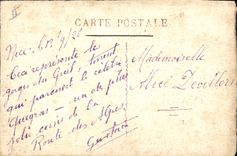 CARTE POSTALE
Nice le 12/9/28
Ceci représente les
gorges du Guet, torrent
qui parcourt le
un des plus
jolis coins de la
Route des Alpes
Gustave
Mademoiselle
Alice Devillers